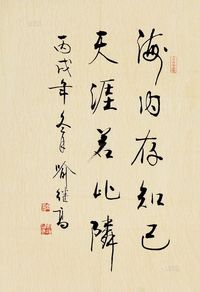 海内存知己
天涯若比隣
丙戌年冬月喻继高